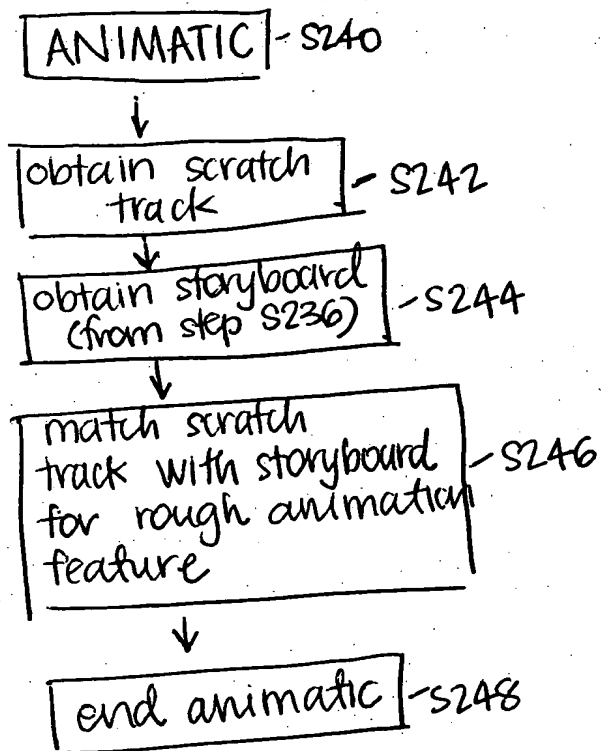 ANIMATIC - S240
obtain scratch
track - S242
obtain storyboard
(from step S236) - S244
match scratch
track with storyboard - S246
for rough animation
feature
end animatic - S248